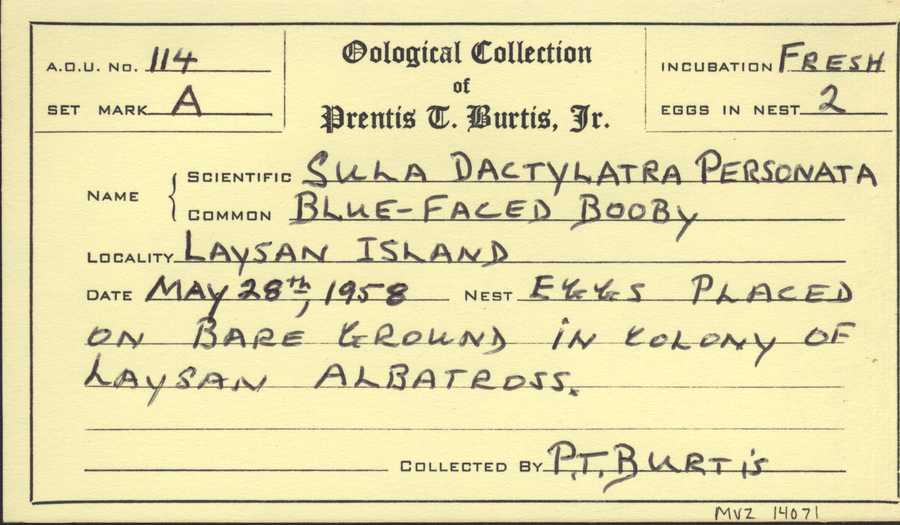 A.O.U. No. 114
Oological Collection
of
Prentis T. Burtis, Jr.
INCUBATION FRESH
SET MARK A
EGGS IN NEST 2
NAME
SCIENTIFIC SULA DACTYLATRA PERSONATA
COMMON BLUE-FACED BOOBY
LOCALITY LAYSAN ISLAND
DATE MAY 28th, 1958 NEST EGGS PLACED
ON BARE GROUND IN COLONY OF
LAYSAN ALBATROSS.
COLLECTED BY P.T. BURTIS
MVZ 14071